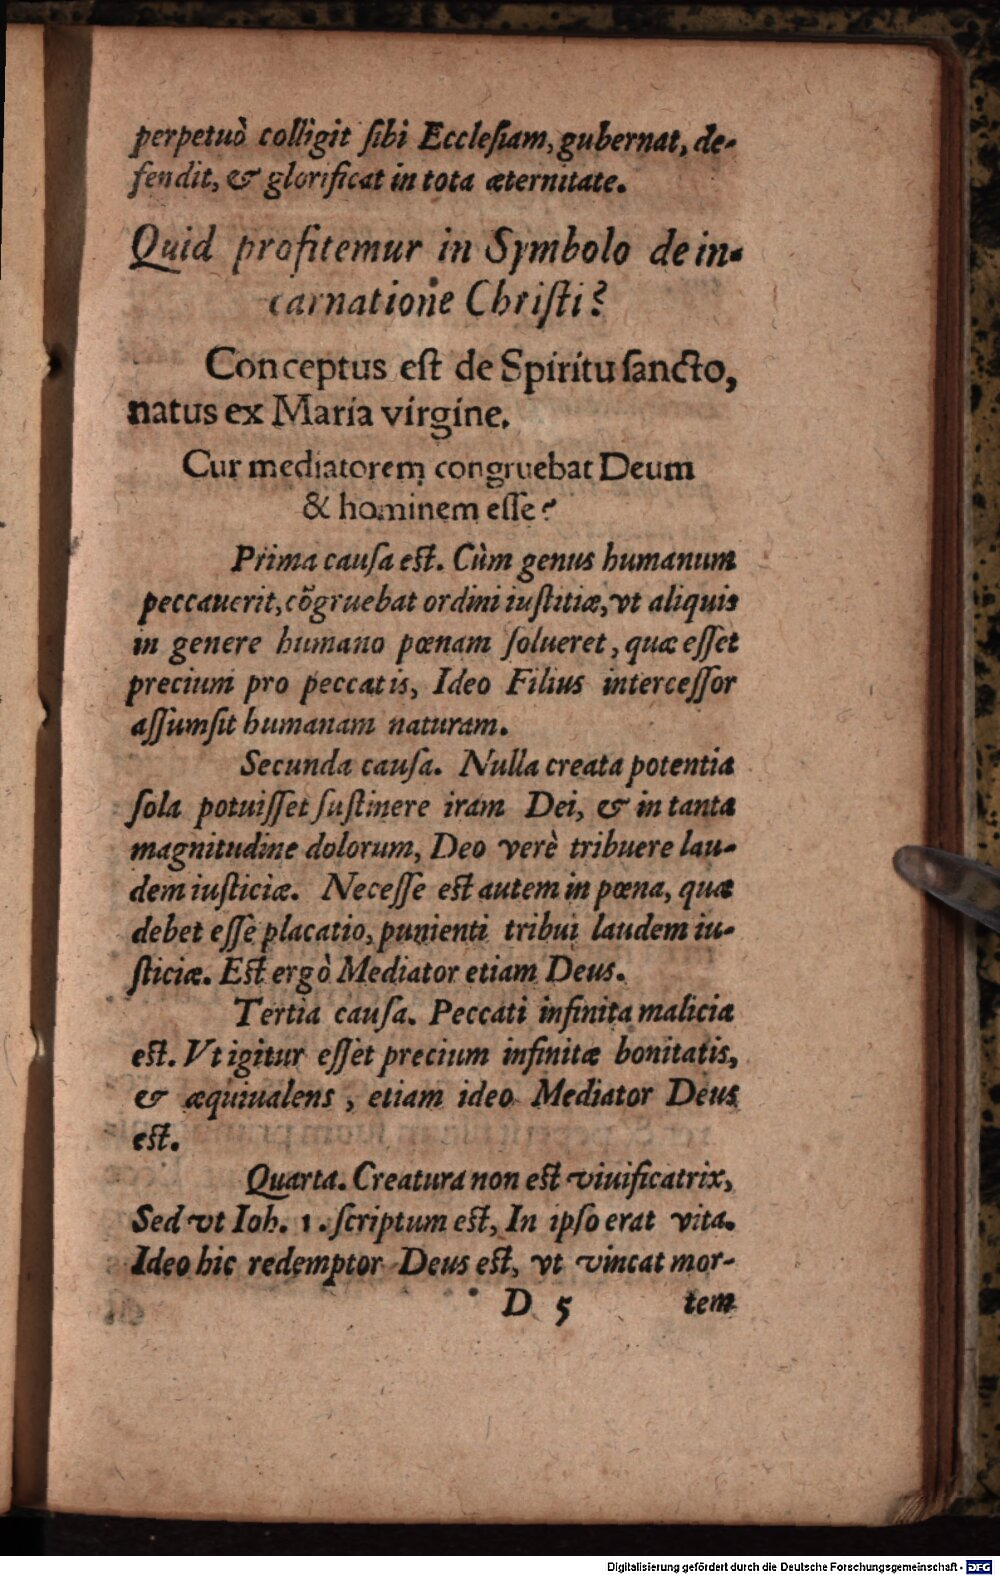 perpetuò colligit ſibi Eccleſiam, gubernat, de-
fendit, & glorificat in tota æternitate.
Quid profitemur in Symbolo de in-
carnatione Chriſti?
Conceptus eſt de Spiritu ſancto,
natus ex Maria virgine.
Cur mediatorem congruebat Deum
& hominem eſſe?
Prima cauſa eſt. Cùm genus humanum
peccauerit, cõgruebat ordini iuſtitiæ, vt aliquis
in genere humano pœnam ſolueret, quæ eſſet
precium pro peccatis, Ideo Filius interceſſor
aſſumſit humanam naturam.
Secunda cauſa. Nulla creata potentia
ſola potuiſſet ſuſtinere iram Dei, & in tanta
magnitudine dolorum, Deo verè tribuere lau-
dem iuſticiæ. Neceſſe eſt autem in pœna, quæ
debet eſſe placatio, punienti tribui laudem iu-
ſticiæ. Eſt ergò Mediator etiam Deus.
Tertia cauſa. Peccati infinita malicia
eſt. Vt igitur eſſet precium infinitæ bonitatis,
& æquiualens, etiam ideo Mediator Deus
eſt.
Quarta. Creatura non eſt viuificatrix,
Sed vt Ioh. 1. ſcriptum eſt, In ipſo erat vita.
Ideo hic redemptor Deus eſt, vt vincat mor-
D 5 tem
Digitalisierung gefördert durch die Deutsche Forschungsgemeinschaft - DFG